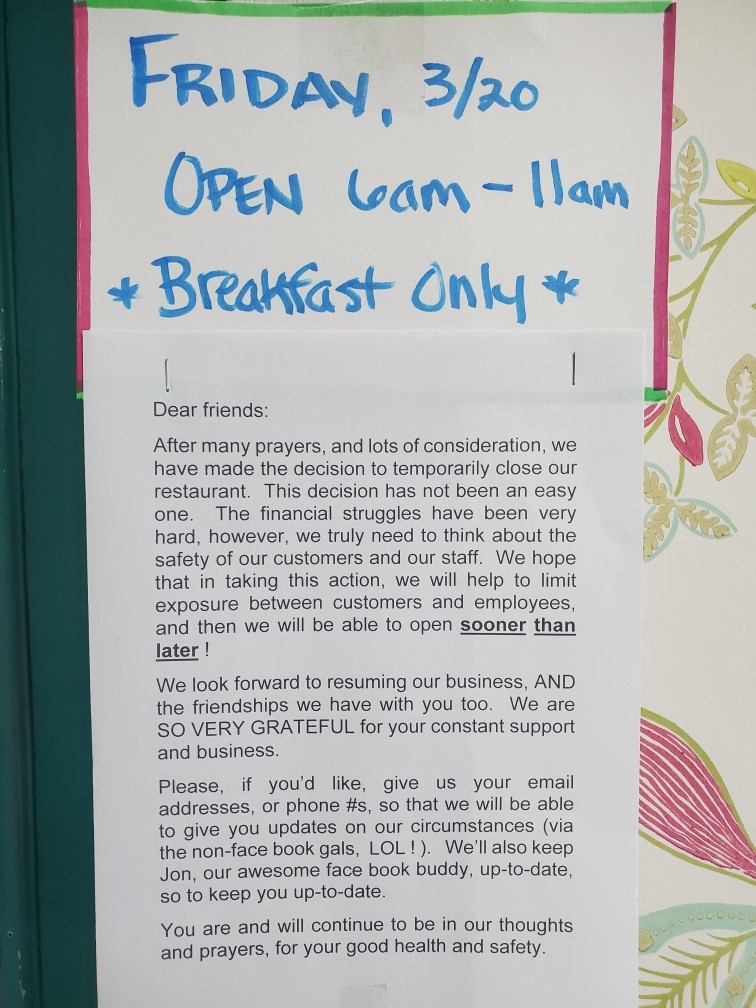 FRIDAY, 3/20
OPEN 6am - 11am
* Breakfast Only *
Dear friends:
After many prayers, and lots of consideration, we
have made the decision to temporarily close our
restaurant. This decision has not been an easy
one. The financial struggles have been very
hard, however, we truly need to think about the
safety of our customers and our staff. We hope
that in taking this action, we will help to limit
exposure between customers and employees,
and then we will be able to open sooner than
later !
We look forward to resuming our business, AND
the friendships we have with you too. We are
SO VERY GRATEFUL for your constant support
and business.
Please, if you'd like, give us your email
addresses, or phone #s, so that we will be able
to give you updates on our circumstances (via
the non-face book gals, LOL ! ). We'll also keep
Jon, our awesome face book buddy, up-to-date,
so to keep you up-to-date.
You are and will continue to be in our thoughts
and prayers, for your good health and safety.